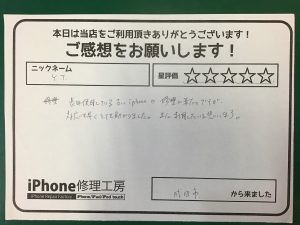 本日は当店をご利用頂きありがとうございます!
ご感想をお願いします!
ニックネーム
K.T.
星評価 ☆☆☆☆☆
長年使用している古いiphoneの修理に来たのですが、
対応も早くとても助かりました。また利用したいと思います。
iPhone修理工房
iPhone Repair Factory iPhone/iPad/iPod touch
から来ました